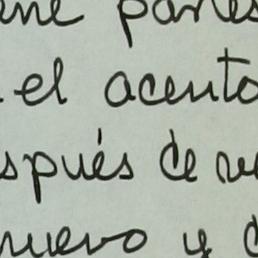 ene partes
el acento
después de
nuevo y